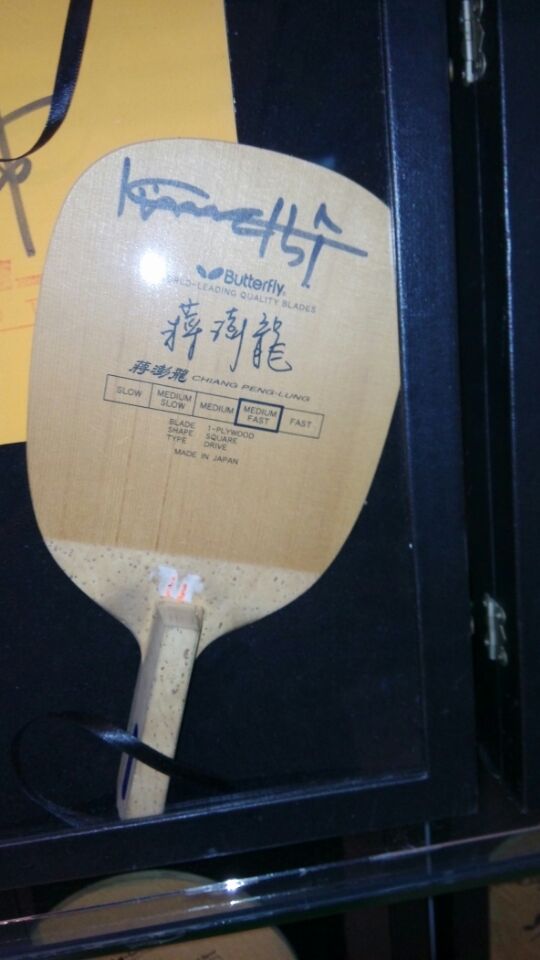 Butterfly
WORLD-LEADING QUALITY BLADES
蒋澎龍
蒋澎龍 CHIANG PENG-LUNG
SLOW MEDIUM SLOW MEDIUM MEDIUM FAST FAST
BLADE 1-PLYWOOD
SHAPE SQUARE
TYPE DRIVE
MADE IN JAPAN